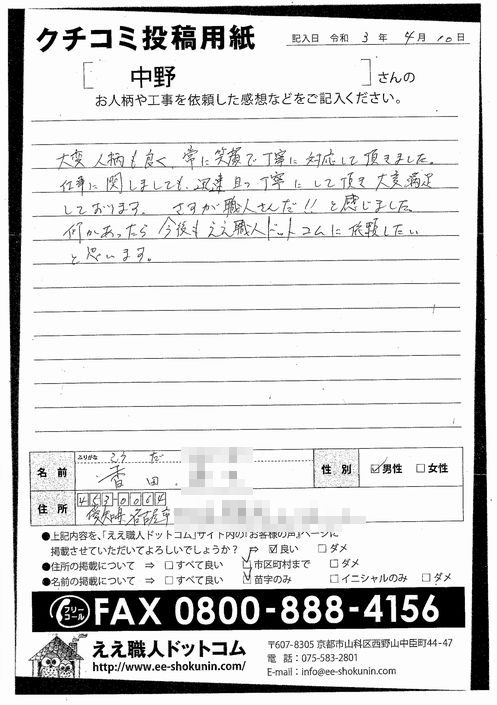 クチコミ投稿用紙
記入日 令和 3 年 4 月 10 日
[ 中野 ] さんの
お人柄や工事を依頼した感想などをご記入ください。
大変人柄も良く 常に笑顔で丁寧に対応して頂きました。
仕事に関しましても、迅速且つ丁寧にして頂き大変満足
しております。 さすが職人さんだ!! と感じました。
何かあったら今後もええ職人ドットコムに依頼したい
と思います。
ふりがな こうだ
名前 香田 性別 ☑男性 □女性
住所 453-0064
愛知県名古屋市
●上記内容を、「ええ職人ドットコム」サイト内の「お客様の声」ページに
掲載させていただいてよろしいでしょうか? ⇒ ☑良い □ダメ
●住所の掲載について ⇒ □すべて良い ☑市区町村まで □ダメ
●名前の掲載について ⇒ □すべて良い ☑苗字のみ □イニシャルのみ □ダメ
フリーコール FAX 0800-888-4156
ええ職人ドットコム
http://www.ee-shokunin.com/
〒607-8305 京都市山科区西野山中臣町44-47
電話:075-583-2801
E-mail:info@ee-shokunin.com